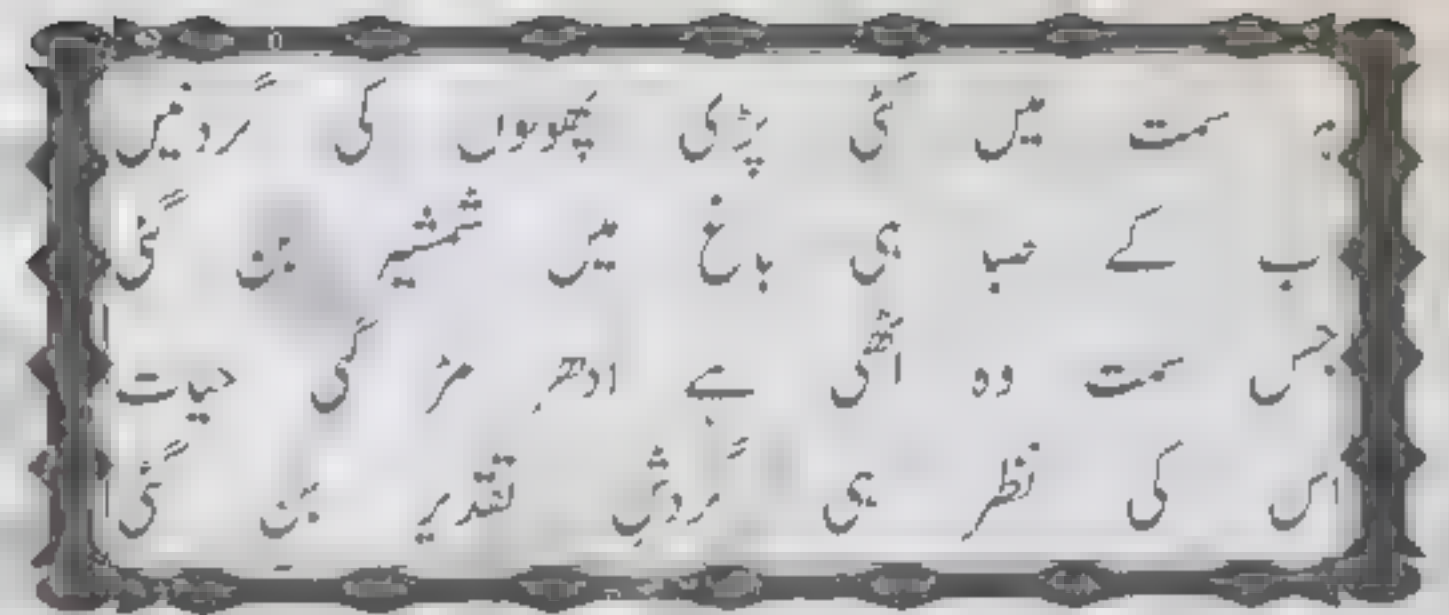 ہر سمت میں کٹی پڑی پھولوں کی گردنیں
اب کے صبا ہی باغ میں شمشیر بن گئی
جس سمت وہ اُٹھی ہے ادھر مڑ گئی حیات
اس کی نظر ہی گردشِ تقدیر بن گئی